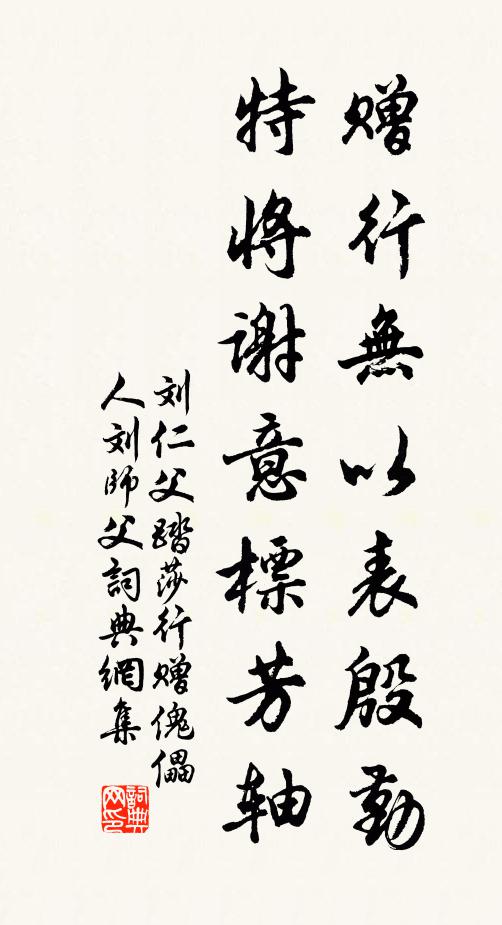 赠行無以表殷勤
特将谢意標芳轴
刘仁父踏莎行赠傀儡
人刘師父詞典網集
詞典网印